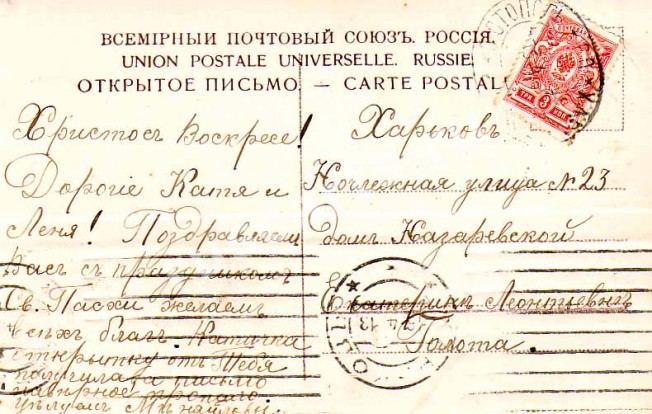 ВСЕМІРНЫЙ ПОЧТОВЫЙ СОЮЗЪ. РОССІЯ.
UNION POSTALE UNIVERSELLE. RUSSIE.
ОТКРЫТОЕ ПИСЬМО. — CARTE POSTALE
ТРИ 3 КОП
Христосъ Воскресе!
Дорогіе Катя и
Леня! Поздравляемъ
Васъ съ праздникомъ
Св. Пасхи желаемъ
всѣхъ благъ. Катичка
открытку отъ Тебя
получила, а письмо
навѣрное пропало.
цѣлуемъ Михайловы
Харьковъ
Ночлежная улица № 23
домъ Назаревской
Екатеринѣ Леонтьевнѣ
Голота.